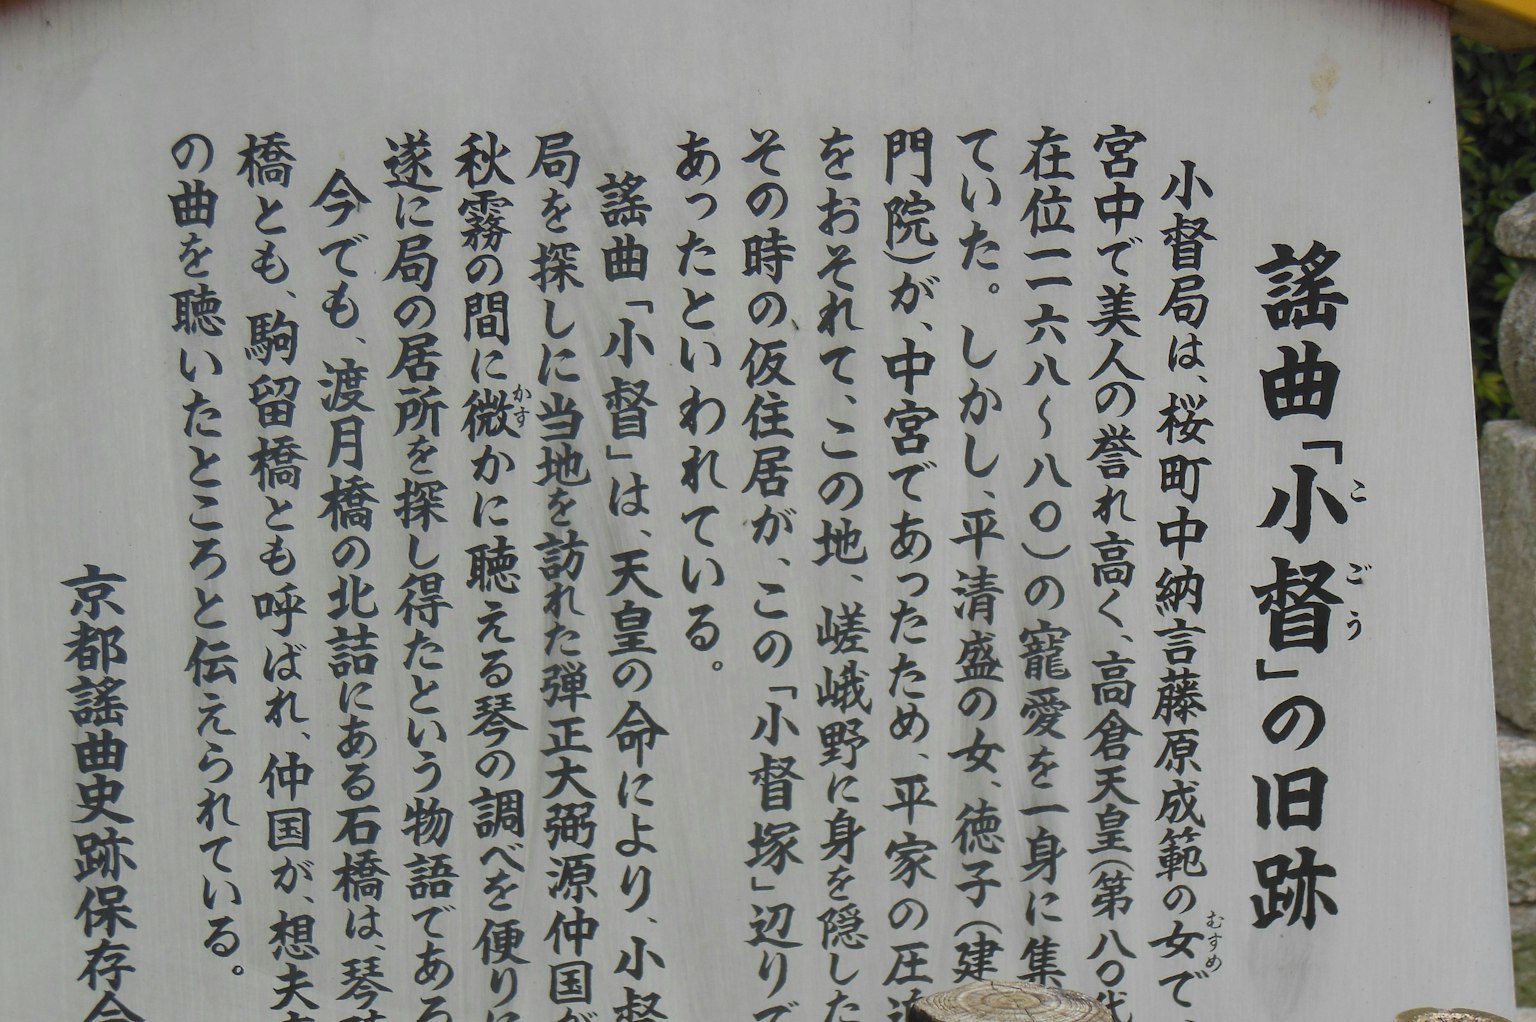 謡曲「小督」の旧跡
こごう
小督局は、桜町中納言藤原成範の女で、
むすめ
宮中で美人の誉れ高く、高倉天皇(第八〇代
在位一一六八～八〇)の寵愛を一身に集
ていた。しかし、平清盛の女、徳子(建
門院)が、中宮であったため、平家の圧迫
をおそれて、この地、嵯峨野に身を隠した
その時の仮住居が、この「小督塚」辺りで
あったといわれている。
謡曲「小督」は、天皇の命により、小督
局を探しに当地を訪れた弾正大弼源仲国が
秋霧の間に微かに聴える琴の調べを便りに
かす
遂に局の居所を探し得たという物語である
今でも、渡月橋の北詰にある石橋は、琴聴
橋とも、駒留橋とも呼ばれ、仲国が、想夫
の曲を聴いたところと伝えられている。
京都謡曲史跡保存会